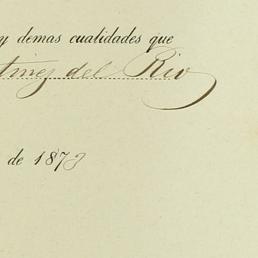 y demas cualidades que
tinez del Rio
de 187